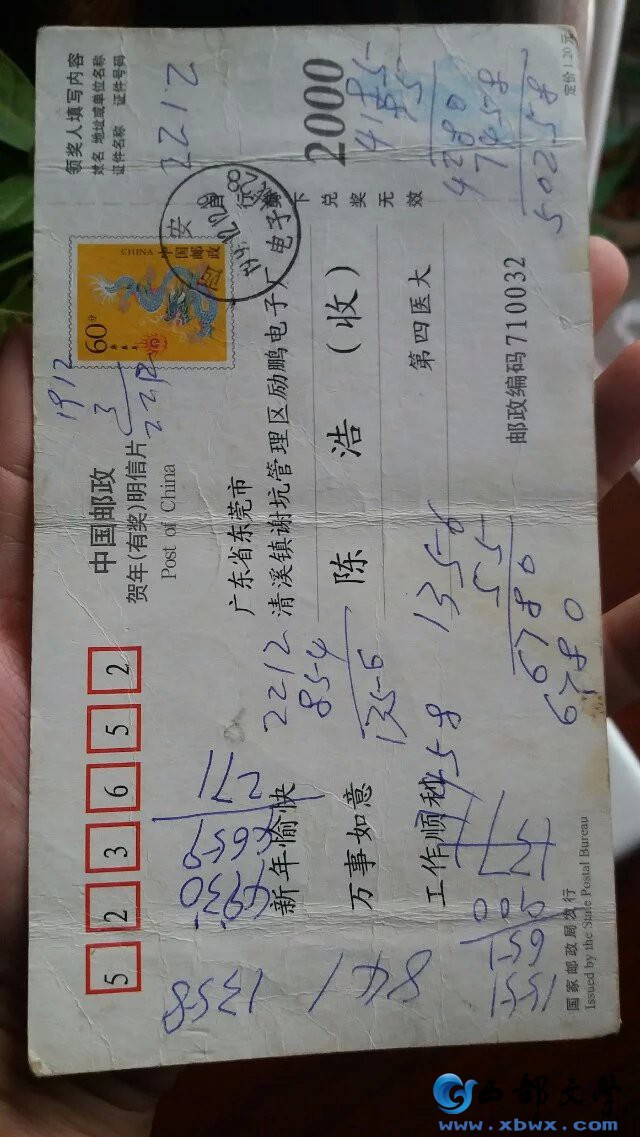 5 2 3 6 5 2
中国邮政
贺年(有奖)明信片
Post of China
CHINA 中国邮政
60分
领奖人填写内容
姓名 地址或单位名称
证件名称 证件号码
2212
1912
3
广东省东莞市
清溪镇谢坑管理区励鹏电子厂电子
下兑奖无效
2000
定价1.20元
陈 浩 (收)
第四医大
邮政编码710032
新年愉快
万事如意
工作顺
国家邮政局发行
Issued by the State Postal Bureau
2212
854
1356
55
6780
6780
4280
7458
50258
1358
841
西部文学
www.xbwx.com